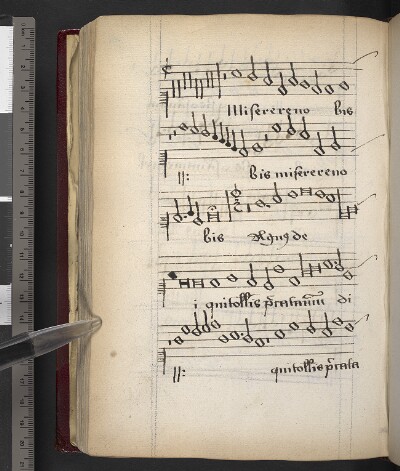 Miserereno bis
bis miserereno
bis Agnus de
i quitollis peccatamu di
quitollis pecca